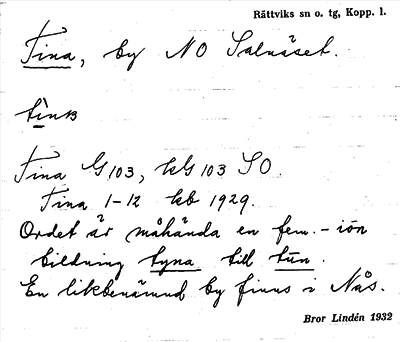 Rättviks sn o. tg, Kopp. l.
Tina, by NO Salnäset.
Tina G 103, kG 103 SO.
Tina 1-12 kb 1929.
Ordet är måhända en fem. - iōn
bildning tyna till tūn.
En likbenämnd by finns i Nås.
Bror Lindén 1932